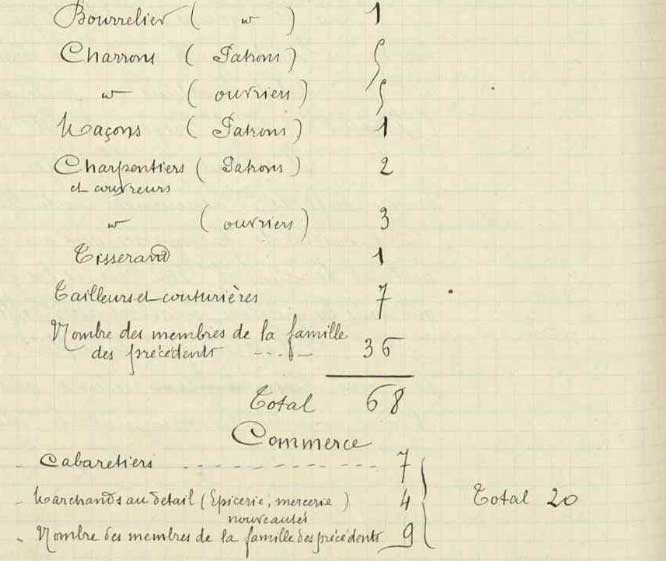 Bourrelier ( w ) 1
Charrons ( Patrons ) 5
w ( ouvriers ) 5
Maçons ( Patrons ) 1
Charpentiers ( Patrons ) 2
et couvreurs
w ( ouvriers ) 3
Tisserand 1
Tailleurs et couturières 7
Nombre des membres de la famille
des précédents 36
Total 68
Commerce
Cabaretiers 7
Marchands au détail ( Epicerie, mercerie ) 4 Total 20
nouveautés
Nombre des membres de la famille des précédents 9